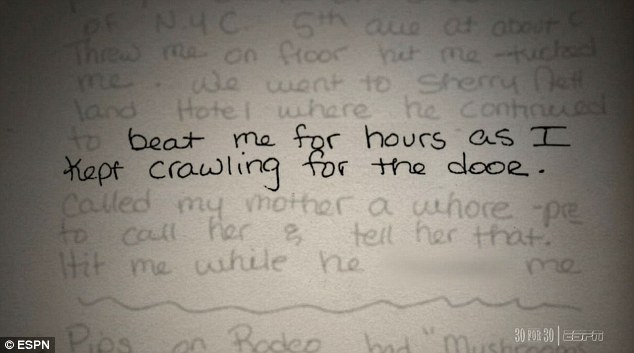 of N.Y.C. 5th ave at about
Threw me on floor hit me -
me. We went to Sherry Neth
land Hotel where he continued
to beat me for hours as I
kept crawling for the door.
Called my mother a whore -
to call her & tell her that.
Hit me while he me
Pigs on Rodeo had
30 FOR 30 | ESPN
© ESPN